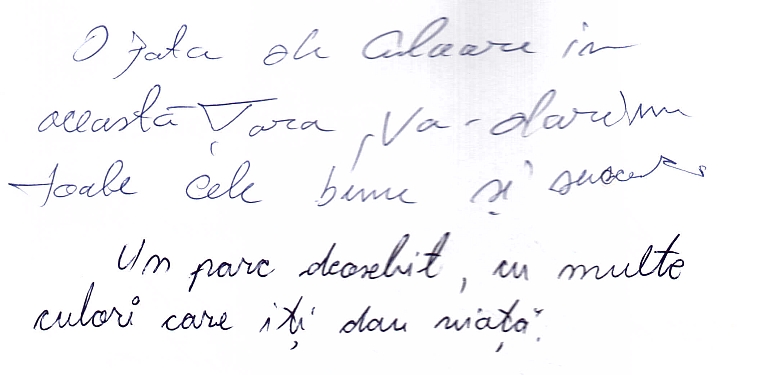 O fata de culoare in
această Țara, Va-dorim
toate cele bune și succes
Un parc deosebit, cu multe
culori care iți dau viață.